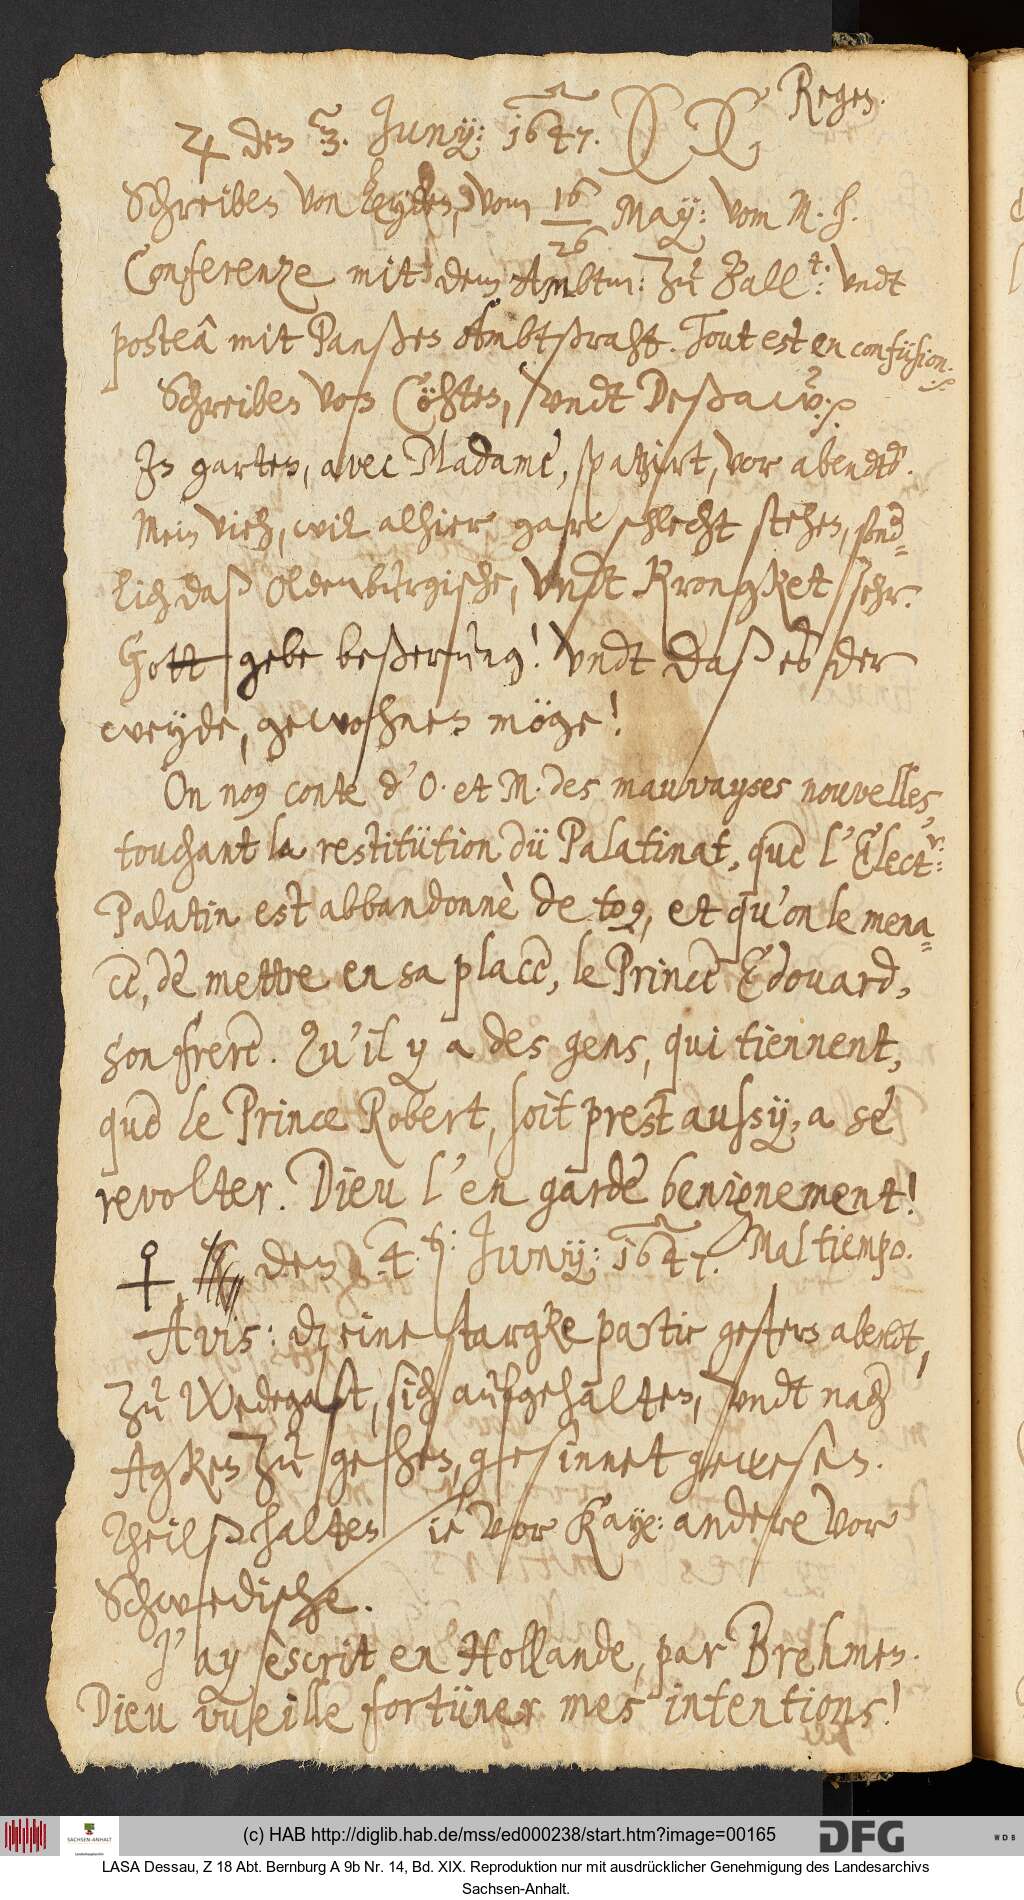 Regen.
♃ den 3. Junÿ: 1647.
Schreiben von Leyden, vom 16/26 Maÿ: vom M. H.
Conferentze mit dem Ambtm: zu Ball.t: undt
posteâ mit Panßes Ambtßraht. Tout est en confüsion. ⁒
Schreiben von Cöhten, undt Deßaw. ⁒
In garten, avec Madame, spatzirt, vor abends.
Mein vieh, wil alhier gar schlecht stehen, sond=
lich daß Oldenburgische, undt Krongket sehr.
Gott gebe beßerung! undt daß es der
weyde, gewohnen möge!
On no9 conte d'O. et M. des mauvayses nouvelles,
touchant la restitütion dü Palatinat, que l'Elect.r:
Palatin est abbandonnè de to9, et qu'on le mena=
ce, de mettre en sa place, le Prince Edouard,
son frere. Qu'il y a des gens, qui tiennent,
que le Prince Robert, soit prest aussÿ, a se
revolter. Dieu l'en garde benignement!
♀ den 4.t: Junÿ: 1647. Mal tiempo.
Avis: dz eine stargke partie gestern abendt,
zu Wedegast, sich aufgehalten, undt nach
Agken zu gehen, gesinnet gewesen.
Theilß halten sie vor Kaye: andere vor
Schwedische.
J'ay escrit en Hollande, par Brehmen.
Dieu vueille fortüner mes intentions!
(c) HAB http://diglib.hab.de/mss/ed000238/start.htm?image=00165
DFG
WDB
SACHSEN-ANHALT
LASA Dessau, Z 18 Abt. Bernburg A 9b Nr. 14, Bd. XIX. Reproduktion nur mit ausdrücklicher Genehmigung des Landesarchivs
Sachsen-Anhalt.